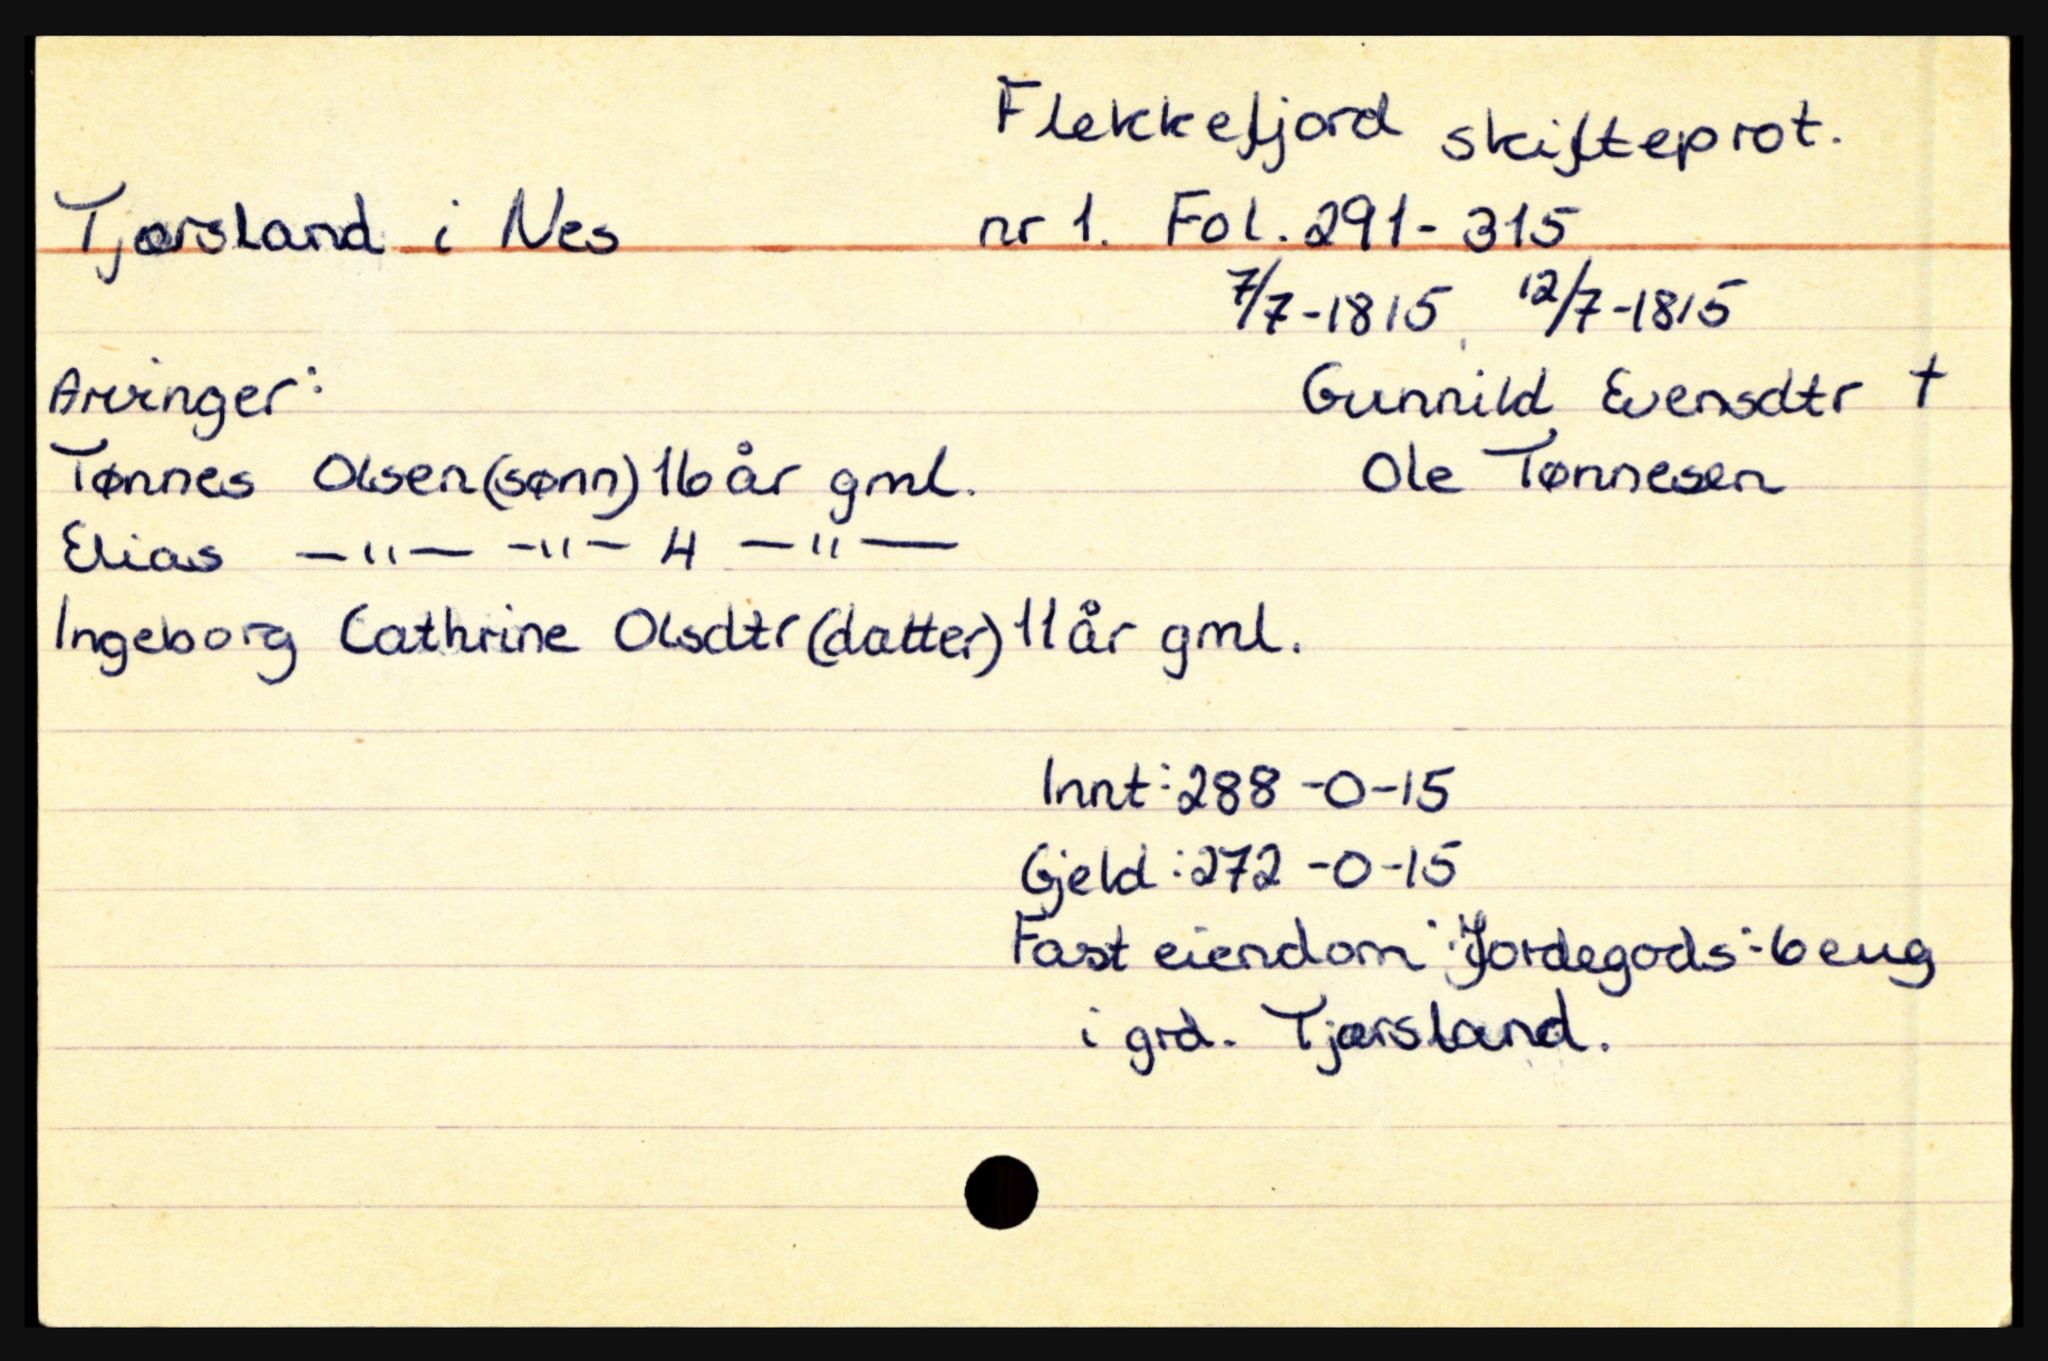 Flekkefjord skifteprot.
Tjærsland i Nes nr 1. Fol. 291-315
7/7-1815, 12/7-1815
Arvinger: Gunnild Evensdtr †
Tønnes Olsen (sønn) 16 år gml. Ole Tønnesen
Elias —"— -"- 4 —"—
Ingeborg Cathrine Olsdtr (datter) 11 år gml.
Innt: 288 -0-15
Gjeld: 272 -0-15
Fast eiendom: Jordegods: 6 eug
i grd. Tjærsland.